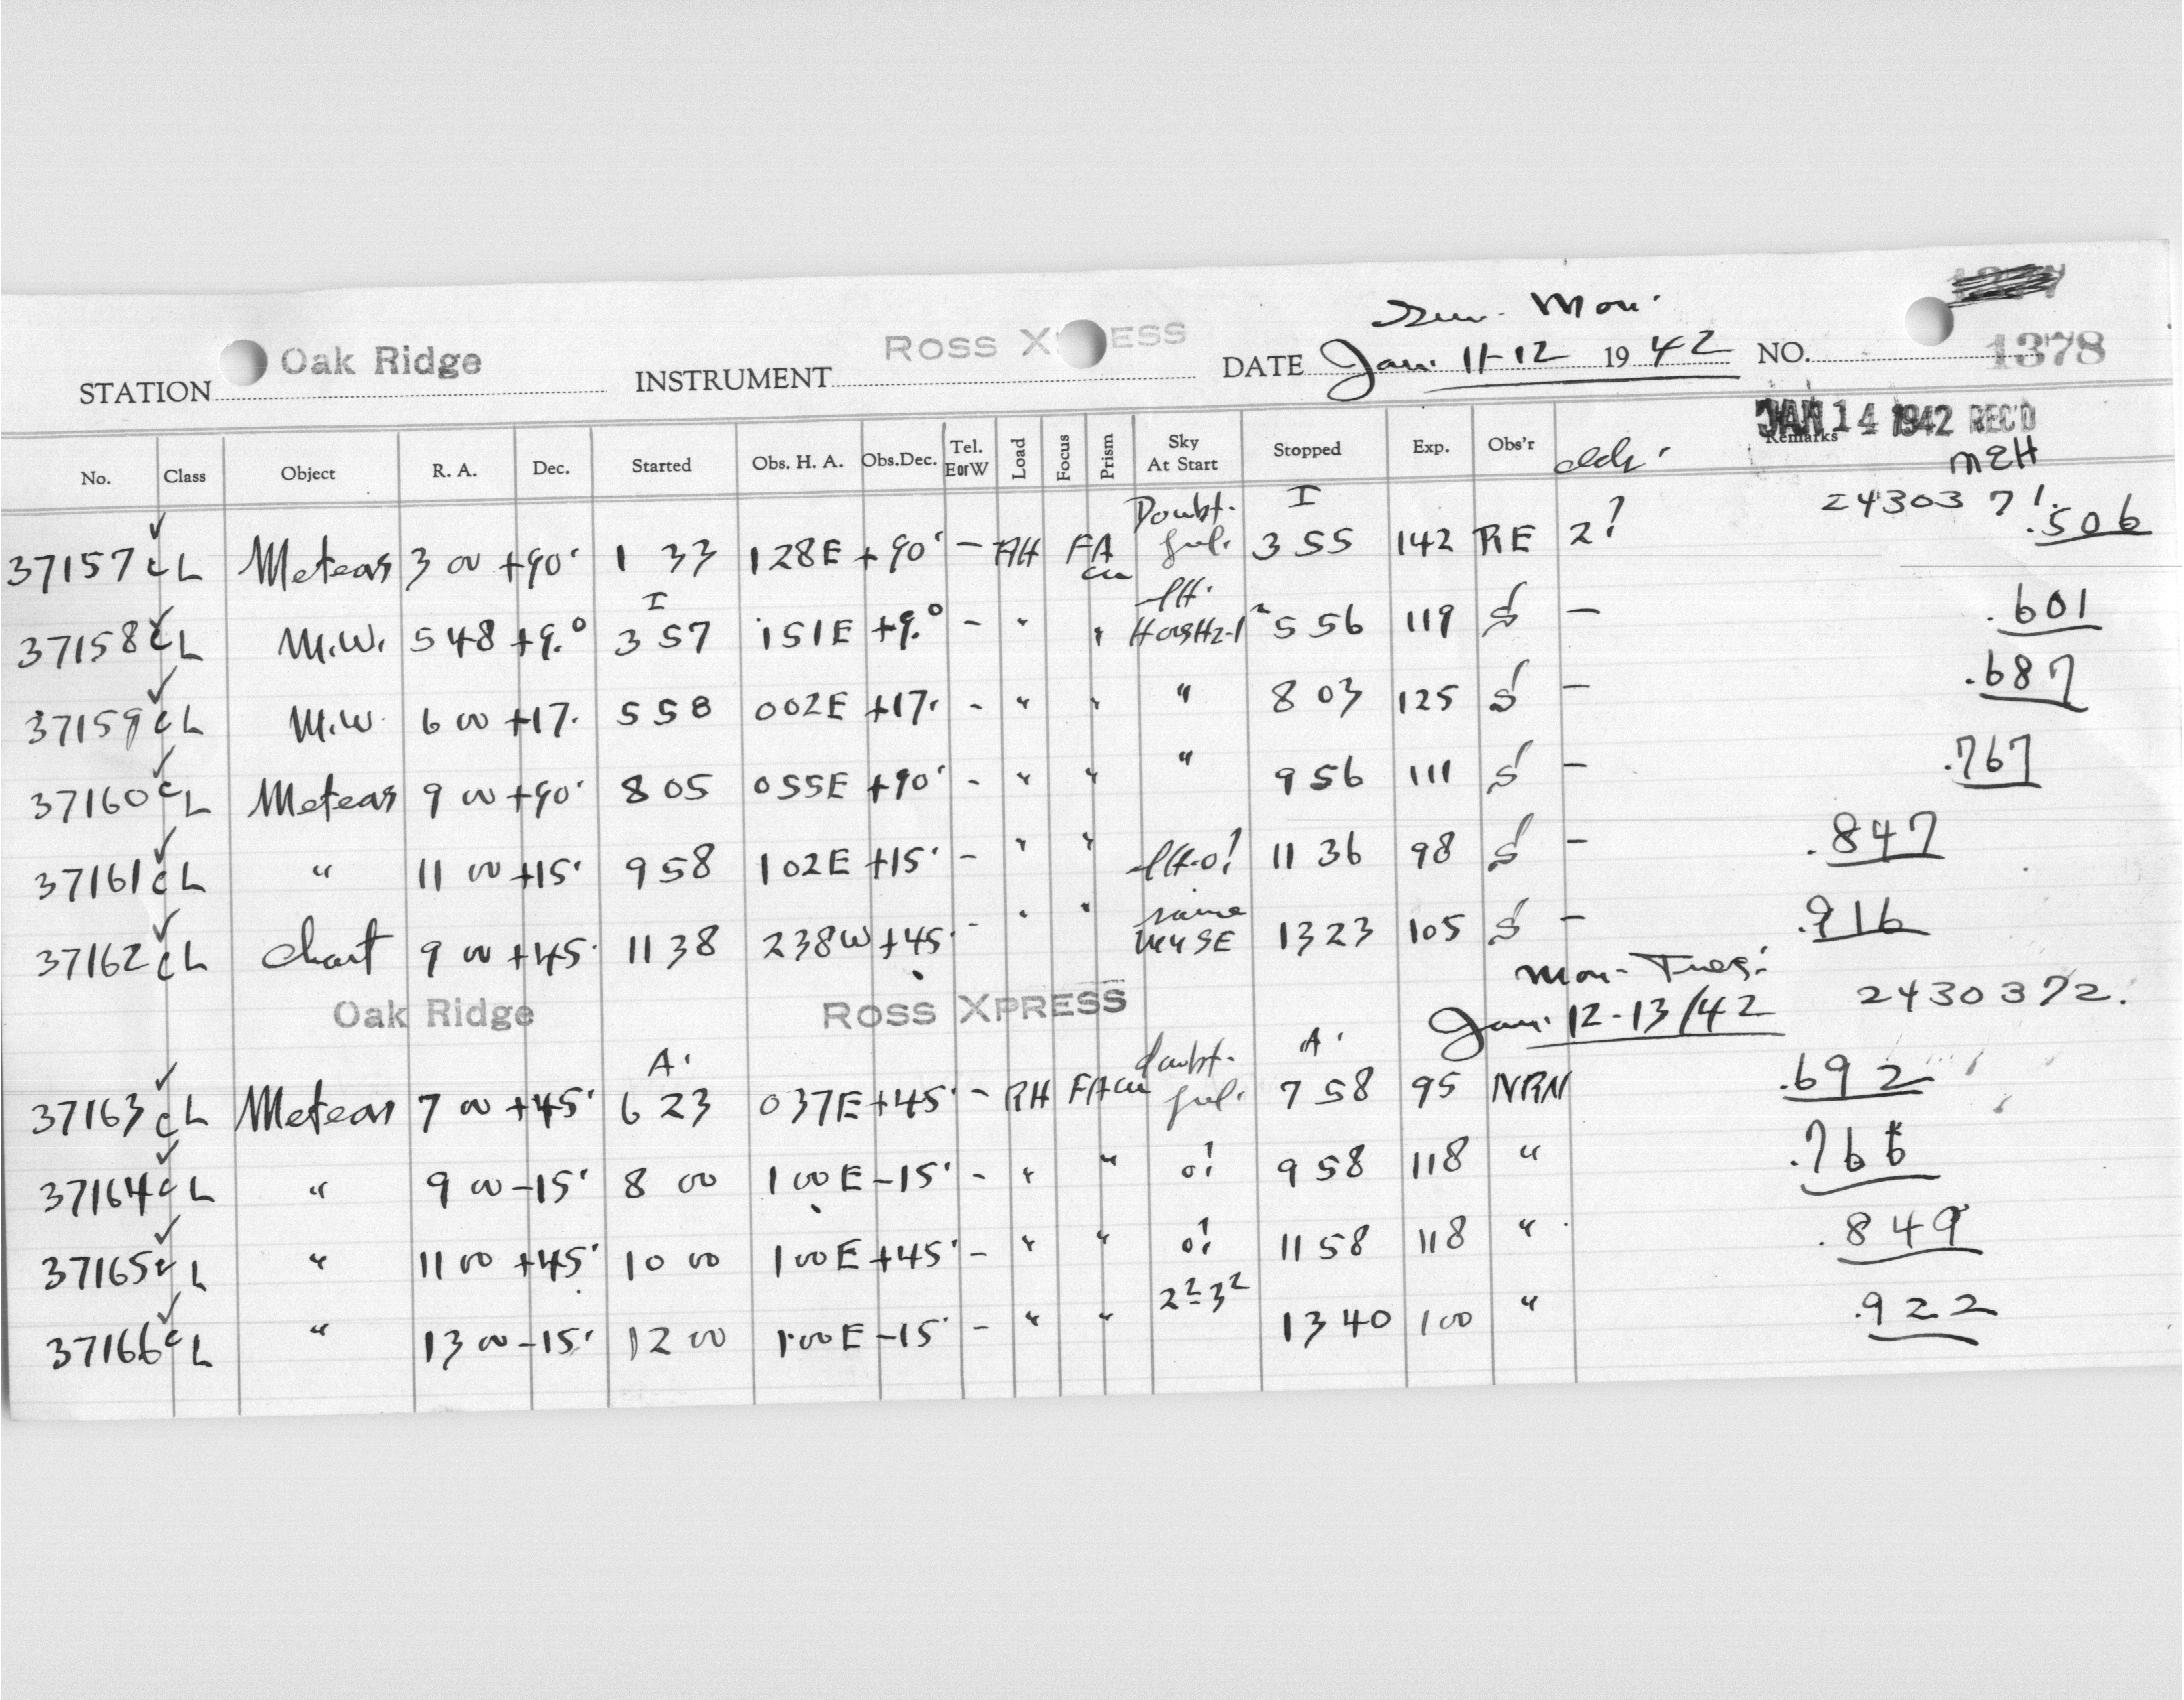 Sun. Mon.
STATION Oak Ridge INSTRUMENT ROSS X ESS DATE Jan. 11-12 1942 NO. 1378
JAN 14 1942 REC'D
No. Class Object R. A. Dec. Started Obs. H. A. Obs.Dec. Tel. E or W Load Focus Prism Sky At Start Stopped Exp. Obs'r Remarks
MEH
2430371.
37157 c L Meteors 3 00 +90° 1 33 128E +90° - RH FA Doubt- ful. I 3 55 142 RE 2? .506
37158 c L M.W. 5 48 +9.° I 3 57 151E +9.° - " " 5 56 119 S - .601
37159 c L M.W. 6 00 +17. 5 58 002E +17. - " " " 8 03 125 S - .687
37160 c L Meteors 9 00 +90° 8 05 055E +90° - " " " 9 56 111 S - .767
37161 c L " 11 00 +15° 9 58 102E +15° - " " 11 36 98 S - .847
37162 c L Chart 9 00 +45° 11 38 238W +45° - " " same 13 23 105 S - .916
Oak Ridge ROSS XPRESS Mon-Tues. Jan. 12-13/42 2430372.
37163 c L Meteors 7 00 +45° A. 6 23 037E +45° - RH FA cu doubt- ful. A. 7 58 95 NRN .692
37164 c L " 9 00 -15° 8 00 100E -15° - " " o! 9 58 118 " .766
37165 c L " 11 00 +45° 10 00 100E +45° - " " o! 11 58 118 " .849
37166 c L " 13 00 -15° 12 00 100E -15° - " " 2²-3² 13 40 100 " .922